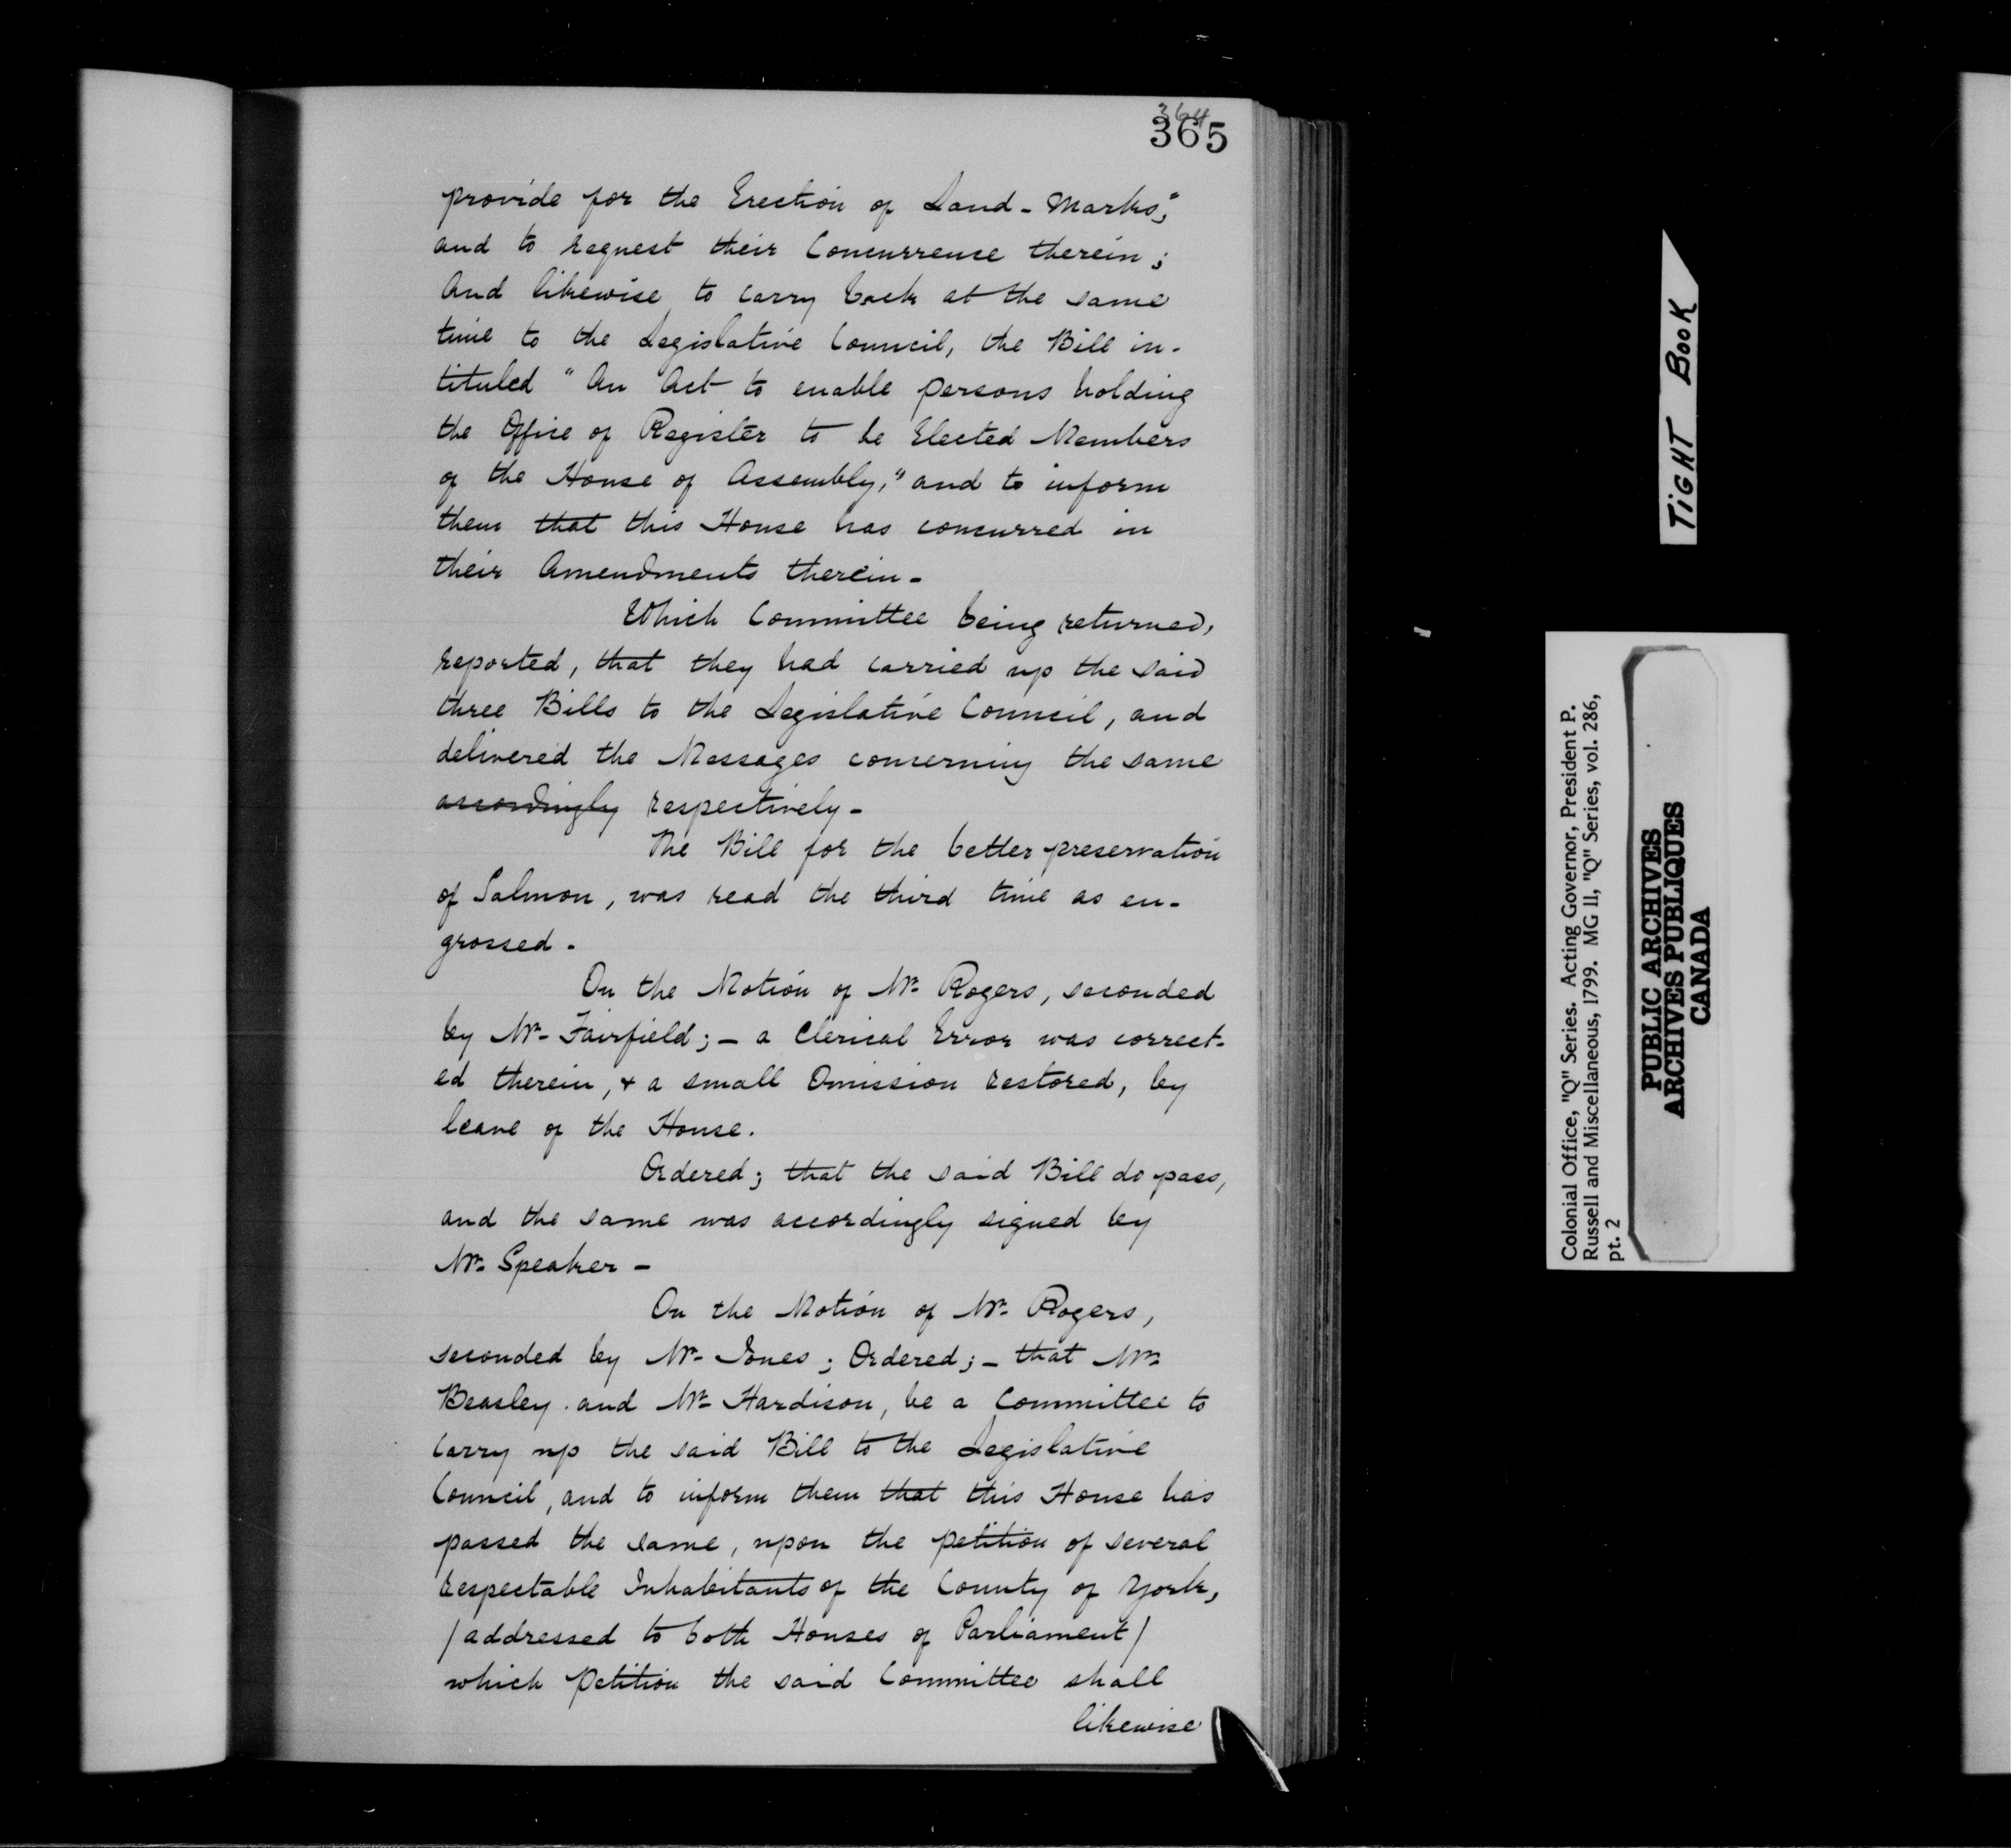 364
365
provide for the Erection of Land-Marks,"
and to request their Concurrence therein;
And likewise to carry back at the same
time to the Legislative Council, the Bill in-
tituled "An Act to enable persons holding
the Office of Register to be Elected Members
of the House of Assembly," and to inform
them that this House has concurred in
their Amendments therein -
Which Committee being returned,
reported, that they had carried up the said
three Bills to the Legislative Council, and
delivered the Messages concerning the same
accordingly respectively -
The Bill for the better preservation
of Salmon, was read the third time as en-
grossed.
On the Motion of Mr. Rogers, seconded
by Mr. Fairfield; - a Clerical Error was correct-
ed therein, & a small Omission restored, by
leave of the House.
Ordered; that the said Bill do pass,
and the same was accordingly signed by
Mr. Speaker -
On the Motion of Mr. Rogers,
seconded by Mr. Jones; Ordered; - that Mr.
Beasley and Mr. Hardison, be a Committee to
carry up the said Bill to the Legislative
Council, and to inform them that this House has
passed the same, upon the petition of several
respectable Inhabitants of the County of York,
/addressed to both Houses of Parliament/
which Petition the said Committee shall
likewise
TIGHT BOOK
Colonial Office, "Q" Series. Acting Governor, President P.
Russell and Miscellaneous, 1799. MG 11, "Q" Series, vol. 286,
pt. 2
PUBLIC ARCHIVES
ARCHIVES PUBLIQUES
CANADA